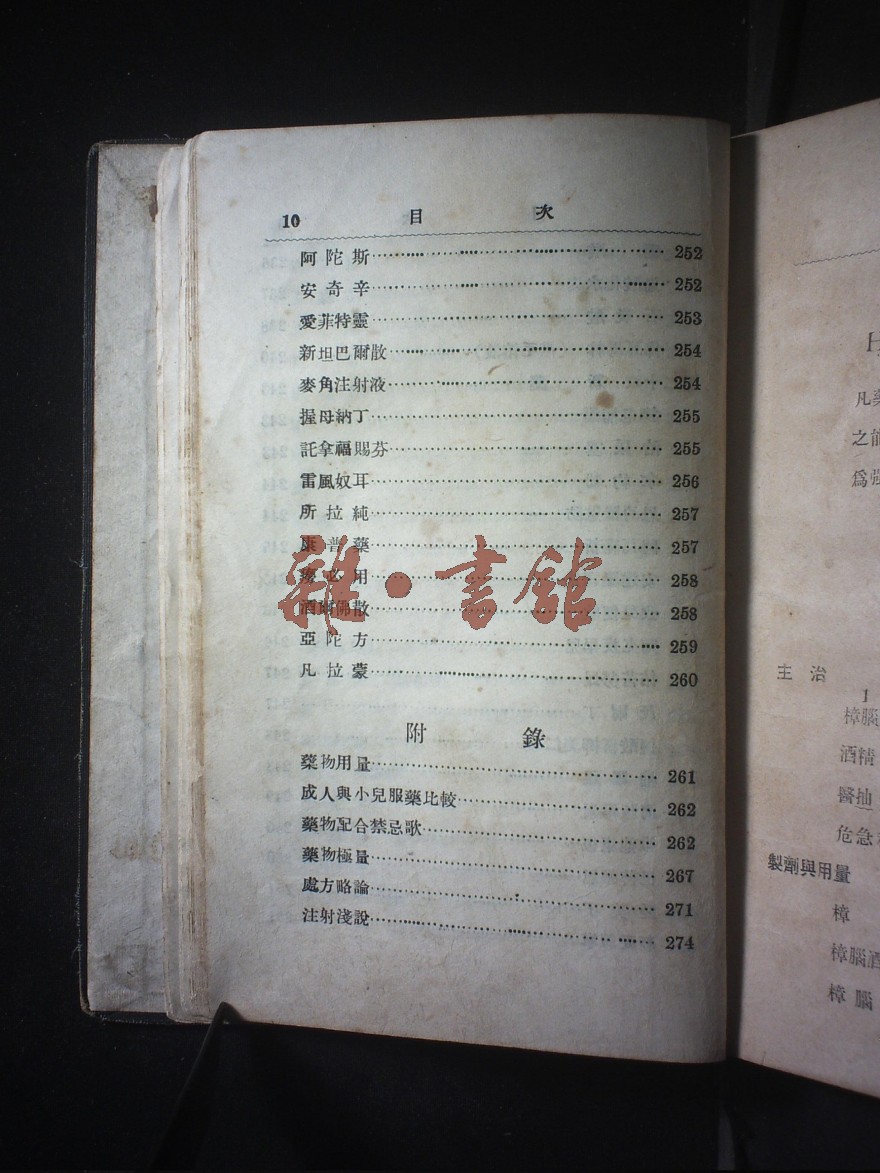 10 目 次
阿陀斯 252
安奇辛 252
愛菲特靈 253
新坦巴爾散 254
麥角注射液 254
握母納丁 255
託拿福賜芬 255
雷風奴耳 256
所拉純 257
康普藥 257
必用 258
酒爾佛散 258
亞陀方 259
凡拉蒙 260
附 錄
藥物用量 261
成人與小兒服藥比較 262
藥物配合禁忌歌 262
藥物極量 267
處方略論 271
注射淺說 274
雜·書館
凡
之前
為強
主治
1
樟腦
酒精
醫抽
危急
製劑與用量
樟
樟腦酒
樟腦